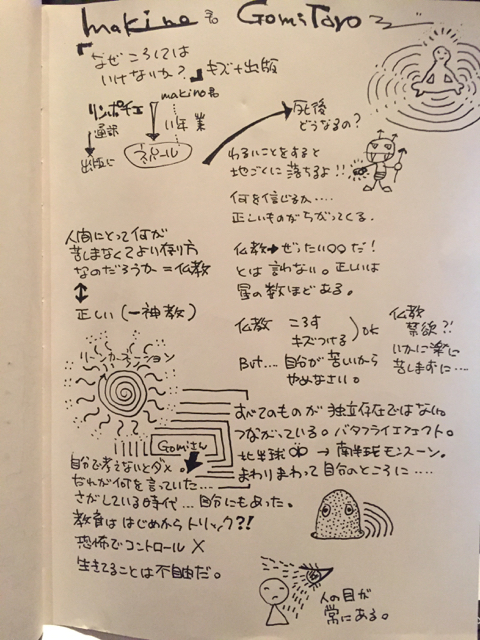 makino君 GomiTaro
『なぜころしては
いけないか?』キズナ出版
makino君
リンポチェ
通訳
11年 業
出版に
ネパール
死後
どうなるの?
わるいことをすると
地ごくに落ちるよ!!
何を信じるか....
正しいものがちがってくる.
人間にとって何が
苦しまなくてよい在り方
なのだろうか=仏教
正しい(一神教)
仏教→ぜったい〇〇だ!
とは言わない。正しいは
星の数ほどある。
仏教 ころす
キズつける
OK
But.... 自分が苦しいから
やめなさい。
仏教
禁欲?!
いかに楽に
苦しまずに....
リーンカーネーション
Gomiさん
すべてのものが独立存在ではない。
つながっている。バタフライエフェクト。
北半球 → 南半球モンスーン。
まわりまわって自分のところに....
自分で考えないとダメ。
だれが何を言っていた....
さがしている時代...自分にもあった。
教育ははじめからトリック?!
恐怖でコントロール X
生きてることは不自由だ。
人の目が
常にある。